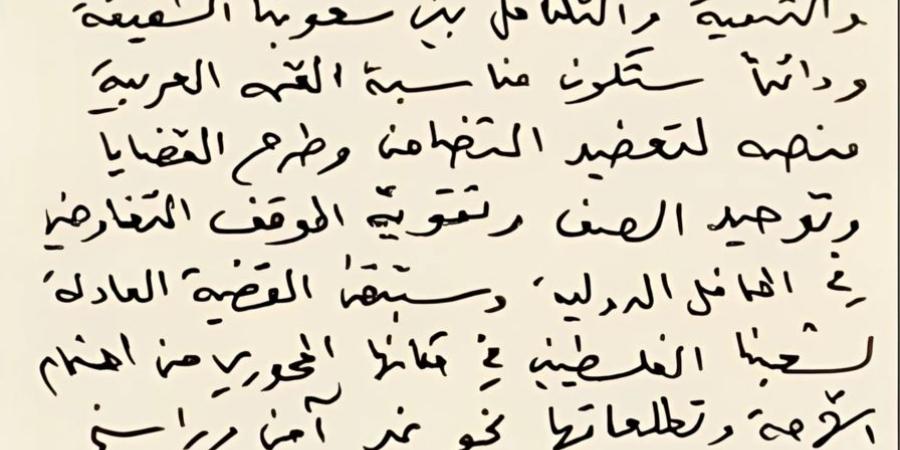 والتنمية والتكامل بين شعوبنا الشقيقة
ودائماً ستكون مناسبة القمه العربية
منصه لتعضيد التضامن وطرح القضايا
وتوحيد الصف وتقوية الموقف التفاوضي
في المحافل الدولية، وستبقى القضية العادلة
لشعبنا الفلسطيني في مكانها المحوري من اهتمام
الأمة وتطلعاتها نحو غد آمن وراسخ